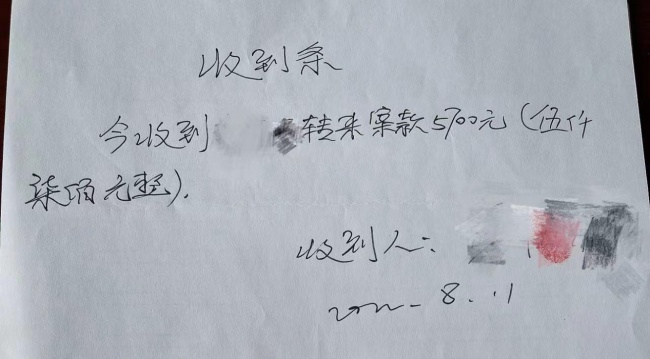 收到条
今收到 转来案款5700元(伍仟
柒佰元整).
收到人:
2022-8.11